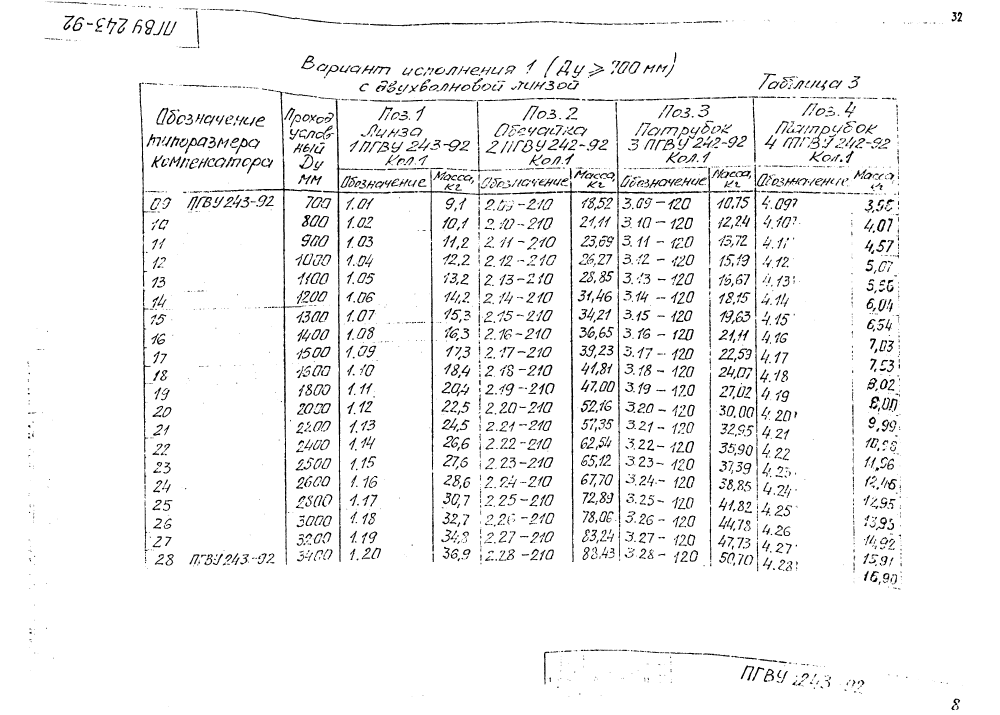 32
ПГВУ 243-92
Вариант исполнения 1 (Ду ≥ 700 мм)
с двухволновой линзой
Таблица 3
Обозначение типоразмера компенсатора | Проход условный Ду мм | Поз. 1 Линза 1 ПГВУ 243-92 Кол.1 | Поз. 2 Обечайка 2 ПГВУ 242-92 Кол.1 | Поз. 3 Патрубок 3 ПГВУ 242-92 Кол.1 | Поз. 4 Патрубок 4 ПГВУ 242-92 Кол.1
Обозначение | Масса, кг | Обозначение | Масса, кг | Обозначение | Масса, кг | Обозначение | Масса, кг
09 ПГВУ 243-92 | 700 | 1.01 | 9,1 | 2.09-210 | 18,52 | 3.09-120 | 10,75 | 4.09
10 | 800 | 1.02 | 10,1 | 2.10-210 | 21,11 | 3.10-120 | 12,24 | 4.10 | 4,07
11 | 900 | 1.03 | 11,2 | 2.11-210 | 23,69 | 3.11-120 | 13,72 | 4.11 | 4,57
12 | 1000 | 1.04 | 12,2 | 2.12-210 | 26,27 | 3.12-120 | 15,19 | 4.12 | 5,07
13 | 1100 | 1.05 | 13,2 | 2.13-210 | 28,85 | 3.13-120 | 16,67 | 4.13 | 5,56
14 | 1200 | 1.06 | 14,2 | 2.14-210 | 31,46 | 3.14-120 | 18,15 | 4.14 | 6,04
15 | 1300 | 1.07 | 15,3 | 2.15-210 | 34,21 | 3.15-120 | 19,63 | 4.15 | 6,54
16 | 1400 | 1.08 | 16,3 | 2.16-210 | 36,65 | 3.16-120 | 21,11 | 4.16 | 7,03
17 | 1500 | 1.09 | 17,3 | 2.17-210 | 39,23 | 3.17-120 | 22,59 | 4.17 | 7,53
18 | 1600 | 1.10 | 18,4 | 2.18-210 | 41,81 | 3.18-120 | 24,07 | 4.18 | 8,02
19 | 1800 | 1.11 | 20,4 | 2.19-210 | 47,00 | 3.19-120 | 27,02 | 4.19
20 | 2000 | 1.12 | 22,5 | 2.20-210 | 52,16 | 3.20-120 | 30,00 | 4.20 | 9,99
21 | 2200 | 1.13 | 24,5 | 2.21-210 | 57,35 | 3.21-120 | 32,95 | 4.21 | 10,98
22 | 2400 | 1.14 | 26,6 | 2.22-210 | 62,54 | 3.22-120 | 35,90 | 4.22 | 11,96
23 | 2500 | 1.15 | 27,6 | 2.23-210 | 65,12 | 3.23-120 | 37,39 | 4.23 | 12,46
24 | 2600 | 1.16 | 28,6 | 2.24-210 | 67,70 | 3.24-120 | 38,85 | 4.24 | 12,95
25 | 2800 | 1.17 | 30,7 | 2.25-210 | 72,89 | 3.25-120 | 41,82 | 4.25 | 13,95
26 | 3000 | 1.18 | 32,7 | 2.26-210 | 78,06 | 3.26-120 | 44,78 | 4.26 | 14,92
27 | 3200 | 1.19 | 34,8 | 2.27-210 | 83,24 | 3.27-120 | 47,73 | 4.27 | 15,91
28 ПГВУ 243-92 | 3400 | 1.20 | 36,9 | 2.28-210 | 88,43 | 3.28-120 | 50,70 | 4.28 | 16,90
ПГВУ 243-92
8